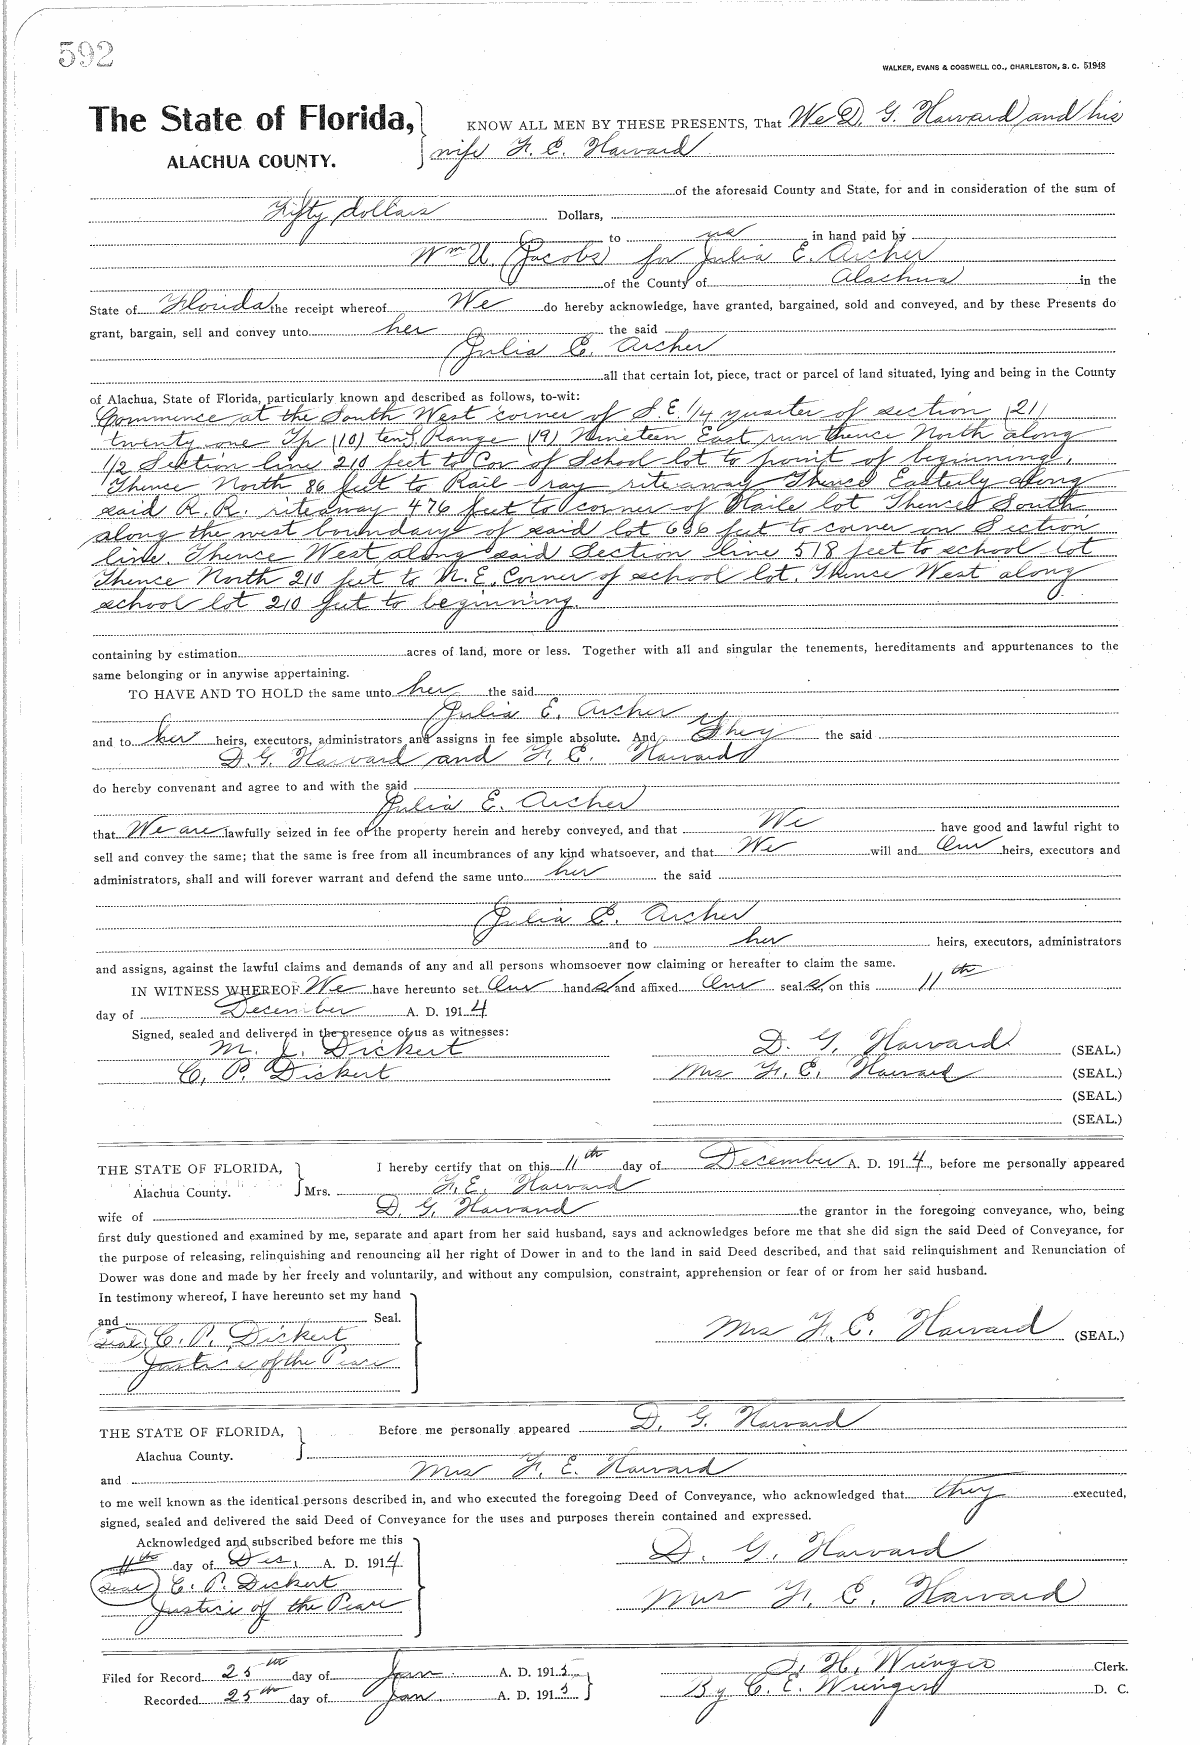 592
WALKER, EVANS & COGSWELL CO., CHARLESTON, S. C. 51948
The State of Florida, KNOW ALL MEN BY THESE PRESENTS, That We D. G. Haward and his
ALACHUA COUNTY. wife F. E. Haward
of the aforesaid County and State, for and in consideration of the sum of
Fifty dollars Dollars,
to us in hand paid by
Wm U. Jacobs for Julia E. Archer
of the County of Alachua in the
State of Florida the receipt whereof We do hereby acknowledge, have granted, bargained, sold and conveyed, and by these Presents do
grant, bargain, sell and convey unto her the said
Julia E. Archer
all that certain lot, piece, tract or parcel of land situated, lying and being in the County
of Alachua, State of Florida, particularly known and described as follows, to-wit:
Commence at the South West corner of S.E. 1/4 quarter of section (21)
twenty one Tp (10) ten S Range (19) Nineteen East run thence North along
1/2 Section line 210 feet to Cor of School lot to point of beginning.
Thence North 86 feet to Rail-ray riteaway Thence Easterly along
said R.R. riteaway 476 feet to corner of Haile lot Thence South
along the west boundary of said lot 696 feet to corner on Section
line. Thence West along said Section line 518 feet to school lot
Thence North 210 feet to N.E. Corner of school lot. Thence West along
school lot 210 feet to beginning.
containing by estimation acres of land, more or less. Together with all and singular the tenements, hereditaments and appurtenances to the
same belonging or in anywise appertaining.
TO HAVE AND TO HOLD the same unto her the said
Julia E. Archer
and to her heirs, executors, administrators and assigns in fee simple absolute. And They the said
D. G. Haward and F. E. Haward
do hereby convenant and agree to and with the said
Julia E. Archer
that We are lawfully seized in fee of the property herein and hereby conveyed, and that We have good and lawful right to
sell and convey the same; that the same is free from all incumbrances of any kind whatsoever, and that We will and Our heirs, executors and
administrators, shall and will forever warrant and defend the same unto her the said
Julia E. Archer
and to her heirs, executors, administrators
and assigns, against the lawful claims and demands of any and all persons whomsoever now claiming or hereafter to claim the same.
IN WITNESS WHEREOF We have hereunto set Our hands and affixed Our seals, on this 11th
day of December A. D. 1914
Signed, sealed and delivered in the presence of us as witnesses:
M. J. Dickert D. G. Haward (SEAL.)
C. P. Dickert Mrs F. E. Haward (SEAL.)
(SEAL.)
(SEAL.)
THE STATE OF FLORIDA, I hereby certify that on this 11th day of December A. D. 1914, before me personally appeared
Alachua County. Mrs. F. E. Haward
wife of D. G. Haward the grantor in the foregoing conveyance, who, being
first duly questioned and examined by me, separate and apart from her said husband, says and acknowledges before me that she did sign the said Deed of Conveyance, for
the purpose of releasing, relinquishing and renouncing all her right of Dower in and to the land in said Deed described, and that said relinquishment and Renunciation of
Dower was done and made by her freely and voluntarily, and without any compulsion, constraint, apprehension or fear of or from her said husband.
In testimony whereof, I have hereunto set my hand
and Seal.
Seal C. P. Dickert Mrs F. E. Haward (SEAL.)
Justice of the Peace
THE STATE OF FLORIDA, Before me personally appeared D. G. Haward
Alachua County.
and Mrs F. E. Haward
to me well known as the identical persons described in, and who executed the foregoing Deed of Conveyance, who acknowledged that they executed,
signed, sealed and delivered the said Deed of Conveyance for the uses and purposes therein contained and expressed.
Acknowledged and subscribed before me this
11th day of Dec, A. D. 1914 D. G. Haward
Seal C. P. Dickert
Justice of the Peace Mrs F. E. Haward
Filed for Record 25th day of Jan A. D. 1915 S. H. Wienges Clerk.
Recorded 25th day of Jan A. D. 1915 By C. E. Wienges D. C.